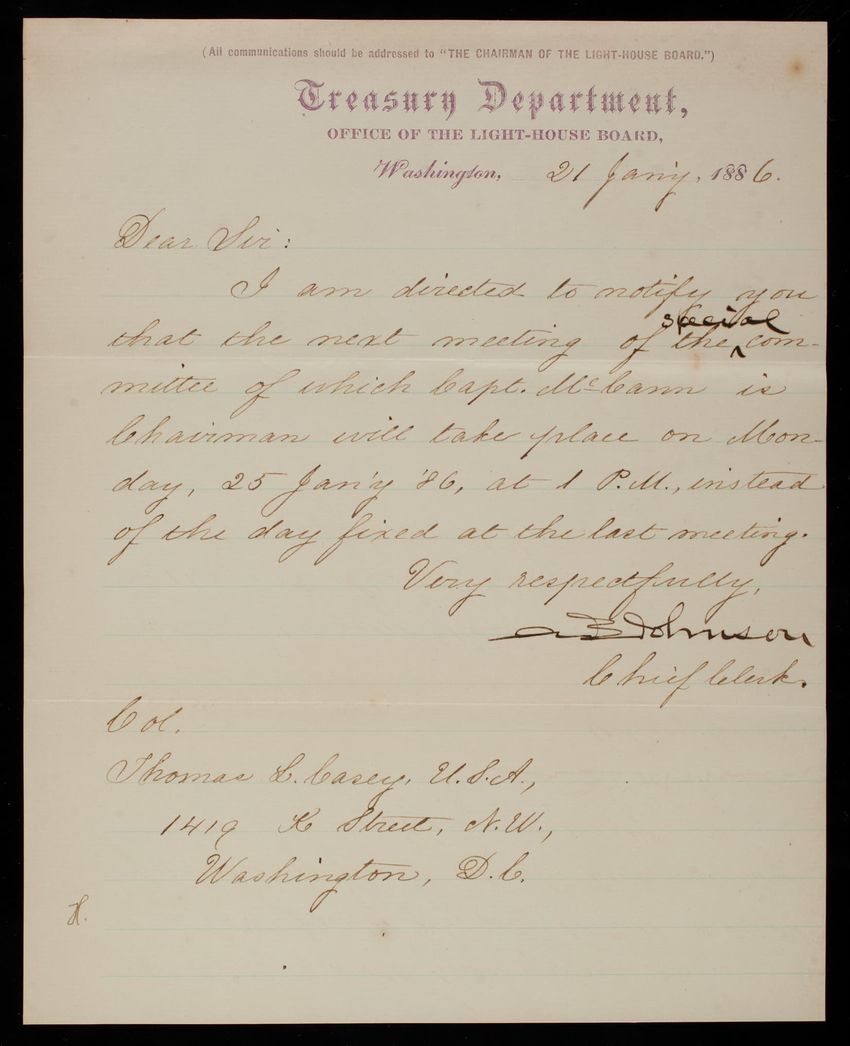 (All communications should be addressed to "THE CHAIRMAN OF THE LIGHT-HOUSE BOARD.")
Treasury Department,
OFFICE OF THE LIGHT-HOUSE BOARD,
Washington, 21 Jan'y, 1886.
Dear Sir:
I am directed to notify you
that the next meeting of the ^special com-
mittee of which Capt. McCann is
Chairman will take place on Mon-
day, 25 Jan'y '86, at 1 P.M., instead
of the day fixed at the last meeting.
Very respectfully,
A B Johnson
Chief Clerk.
Col.
Thomas L. Casey, U.S.A.,
1419 K Street, N.W.,
Washington, D.C.
H.